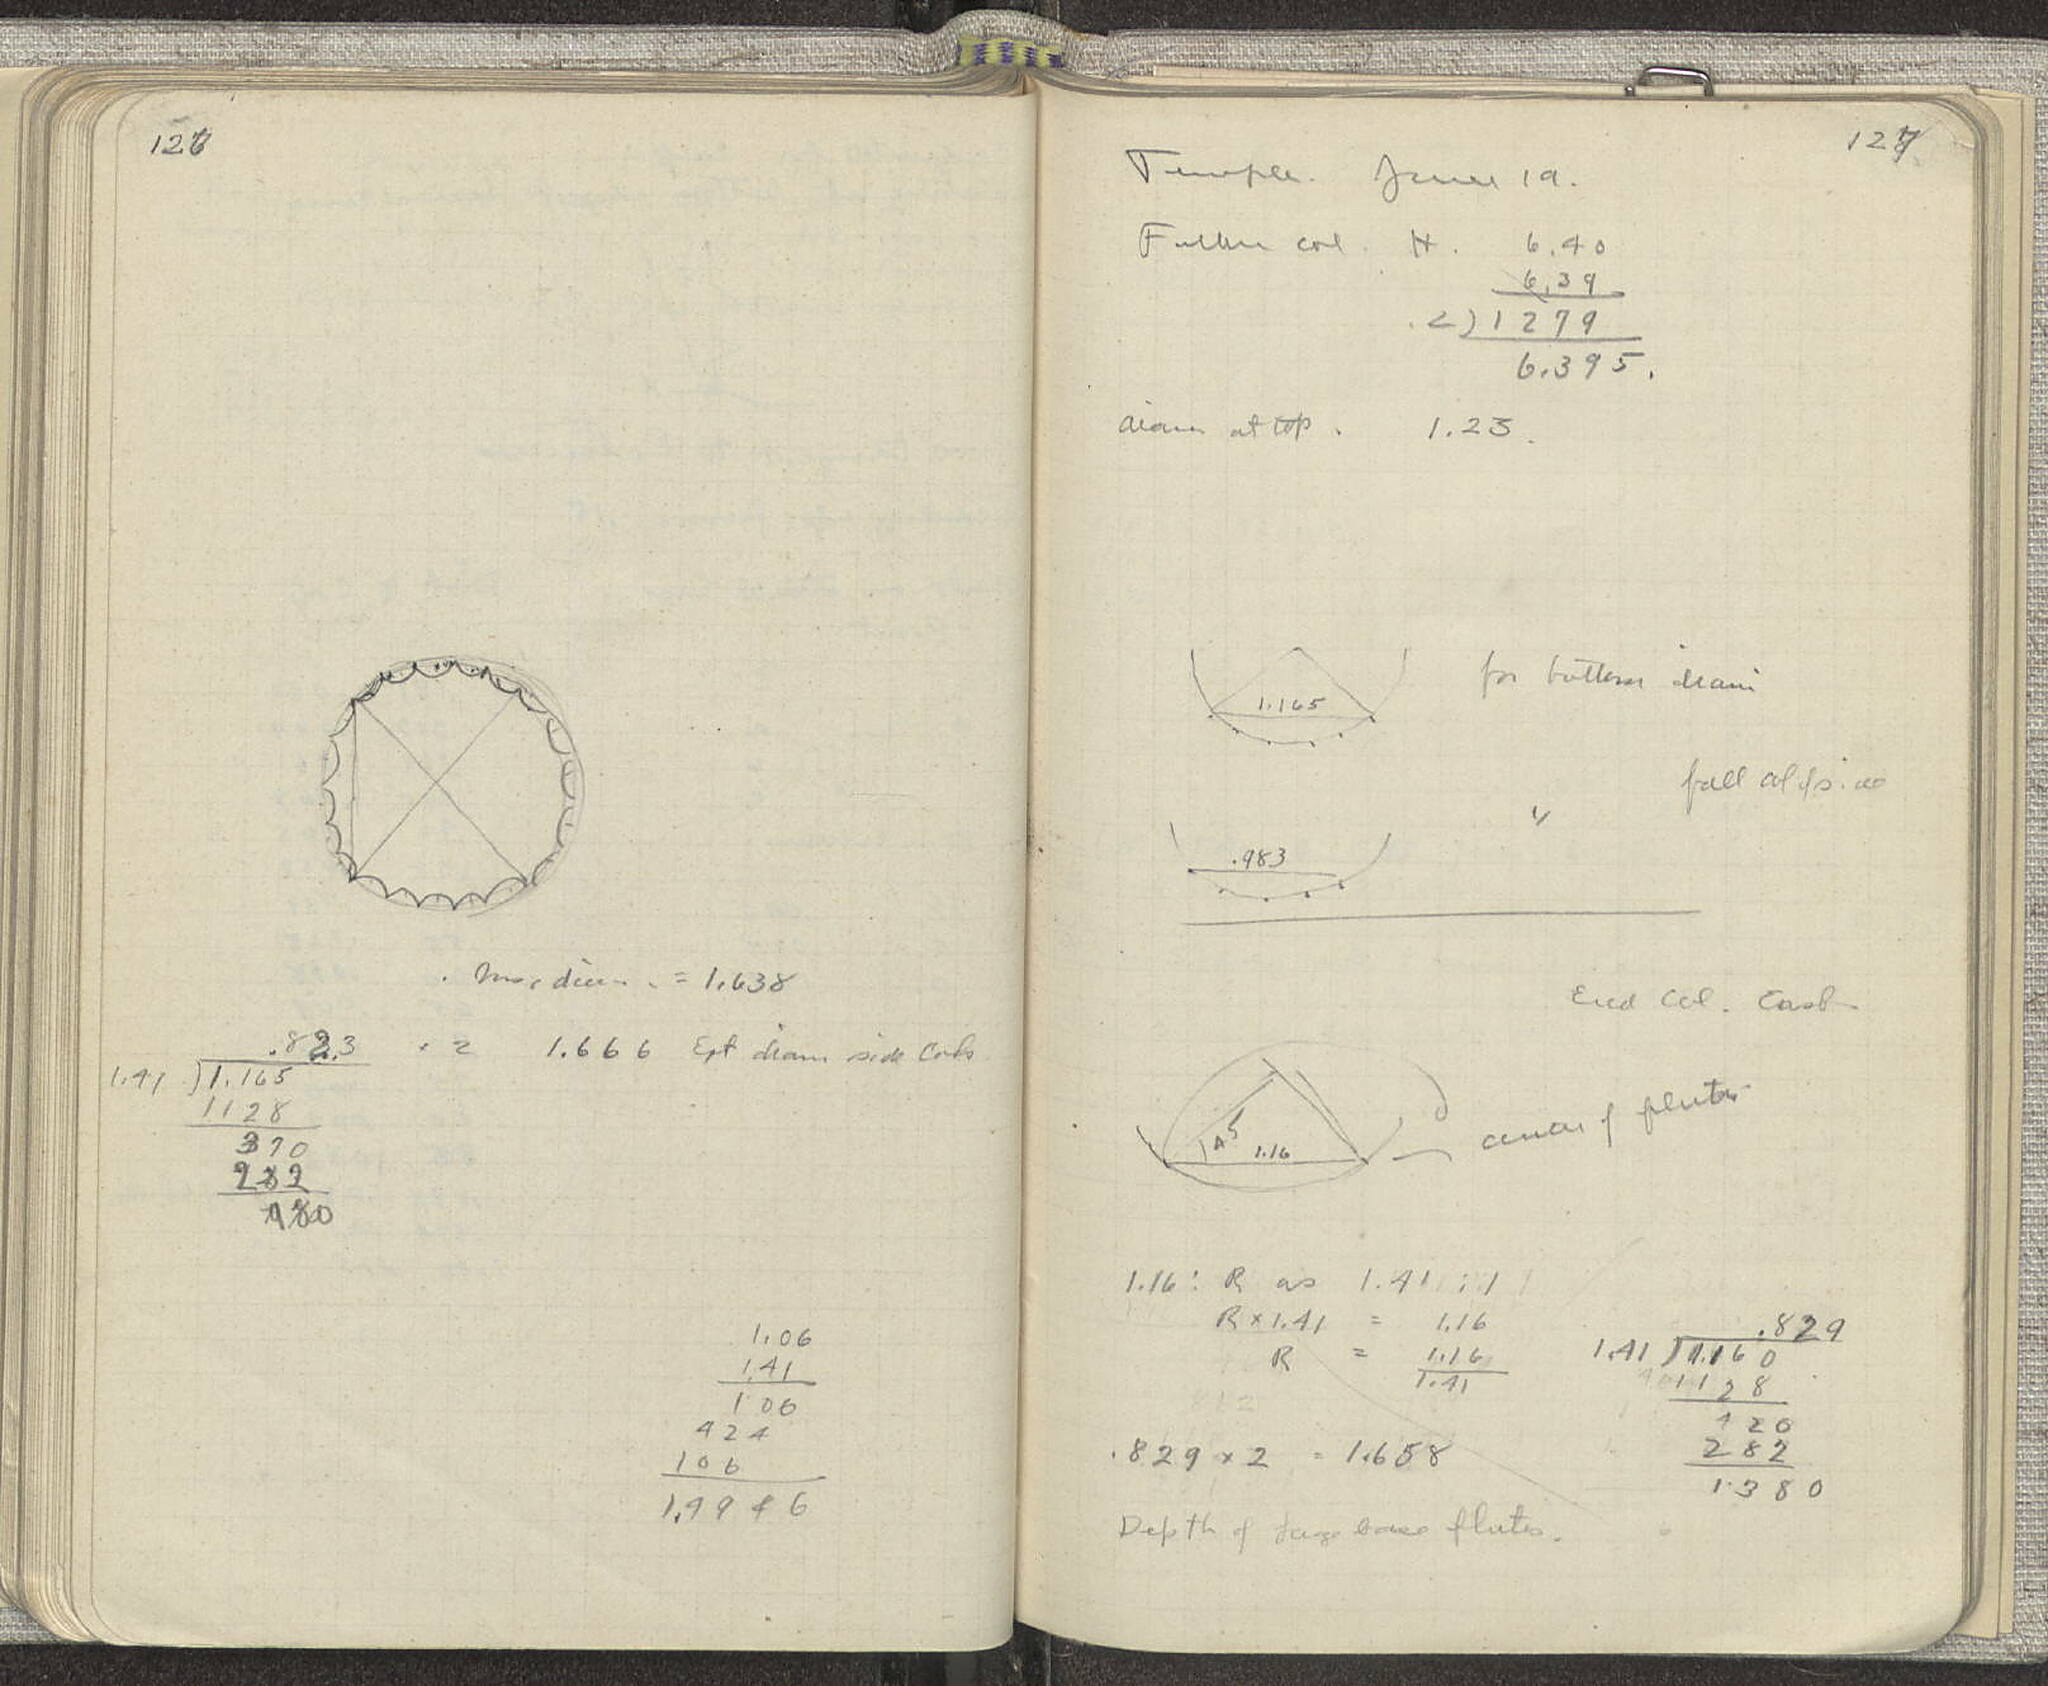 126
max diam. = 1.638
.823 × 2 1.666 Ept diam side Cols
1.41 ) 1.165
1128
370
282
880
1.06
1.41
106
424
106
1.4946
127
Temple. June 19.
Fallen col. H. 6.40
6.39
2) 1279
6.395.
diam at top. 1.23.
1.165
for bottom diam
fall col
"
.983
End Col. East
45
1.16
center of flutes
1.16 : R as 1.41 : 1
R × 1.41 = 1.16
R = 1.16
1.41
.829
1.41 ) 1.160
1128
420
282
1380
.829 × 2 = 1.658
Depth of base flutes.